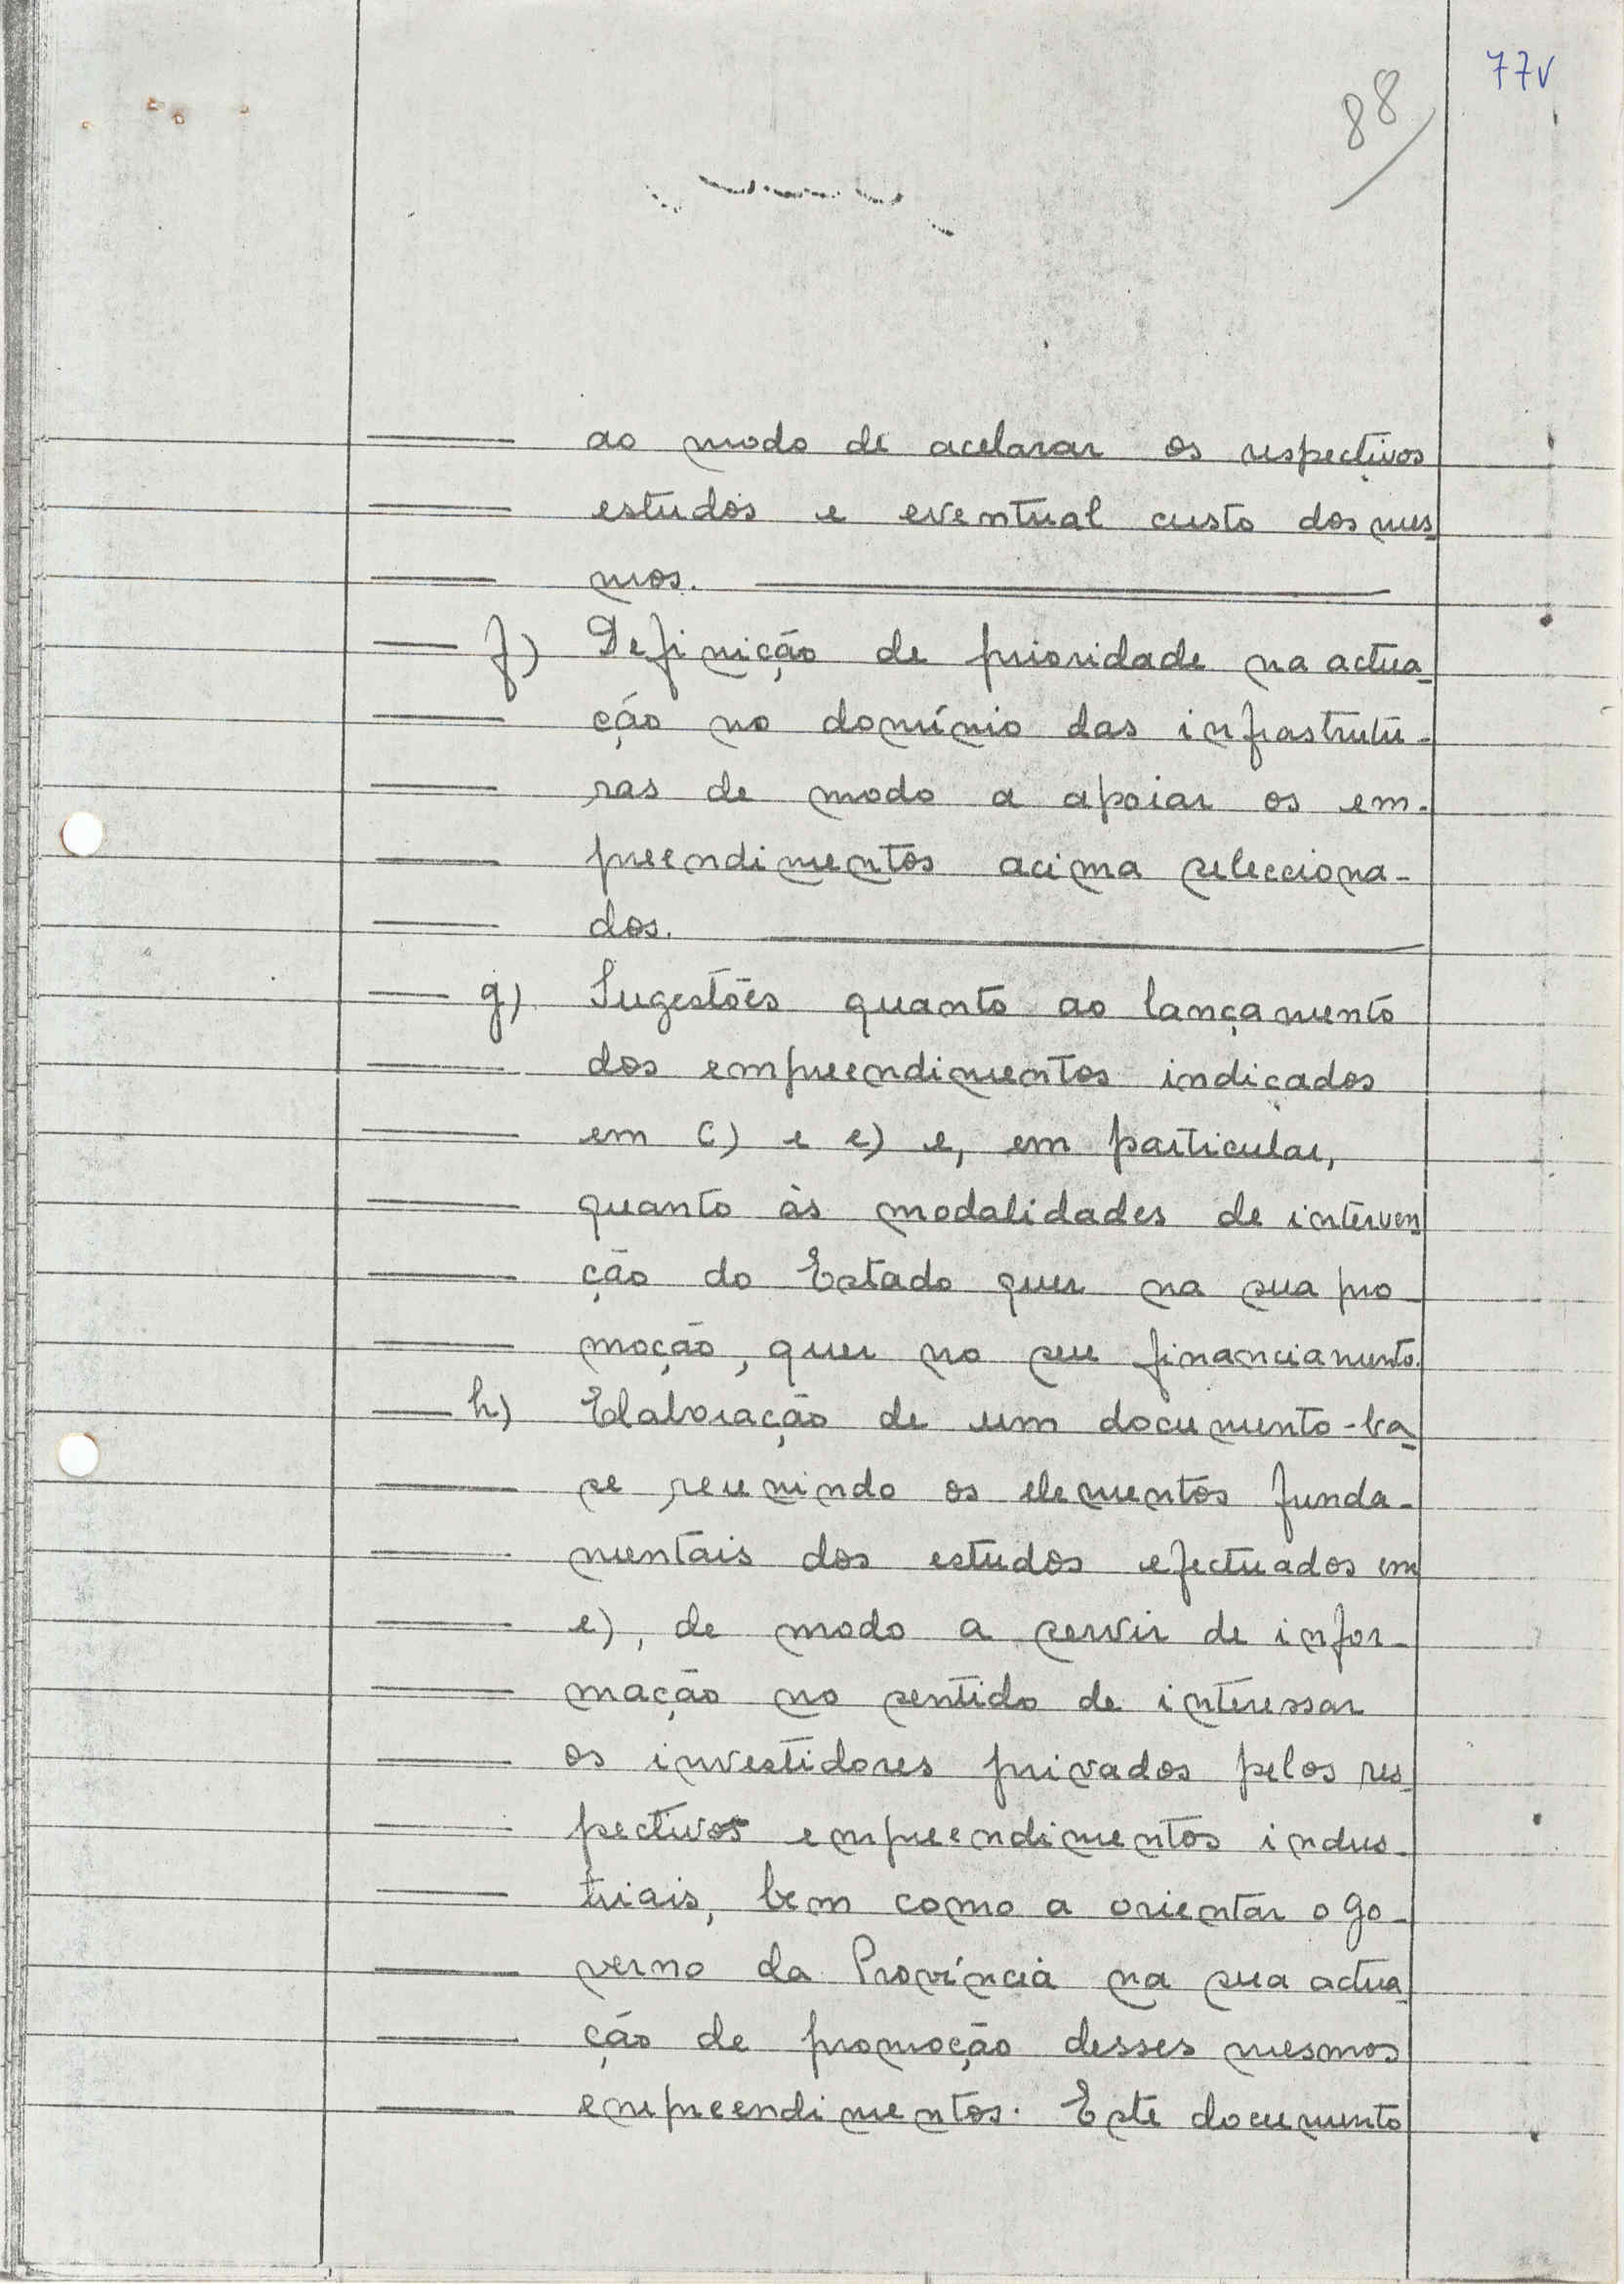 77v
88
ao modo de acelarar os respectivos
estudos e eventual custo dos mes-
mos.
f) Definição de prioridade na actua-
ção no domínio das infrastrutu-
ras de modo a apoiar os em-
preendimentos acima selecciona-
dos.
g) Sugestões quanto ao lançamento
dos empreendimentos indicados
em c) e e) e, em particular,
quanto às modalidades de interven
ção do Estado quer na sua pro-
moção, quer no seu financiamento.
h) Elaboração de um documento-ba-
se reunindo os elementos funda-
mentais dos estudos efectuados em
e), de modo a servir de infor-
mação no sentido de interessar
os investidores privados pelos res-
pectivos empreendimentos indus-
triais, bem como a orientar o Go-
verno da Província na sua actua-
ção de promoção desses mesmos
empreendimentos. Este documento